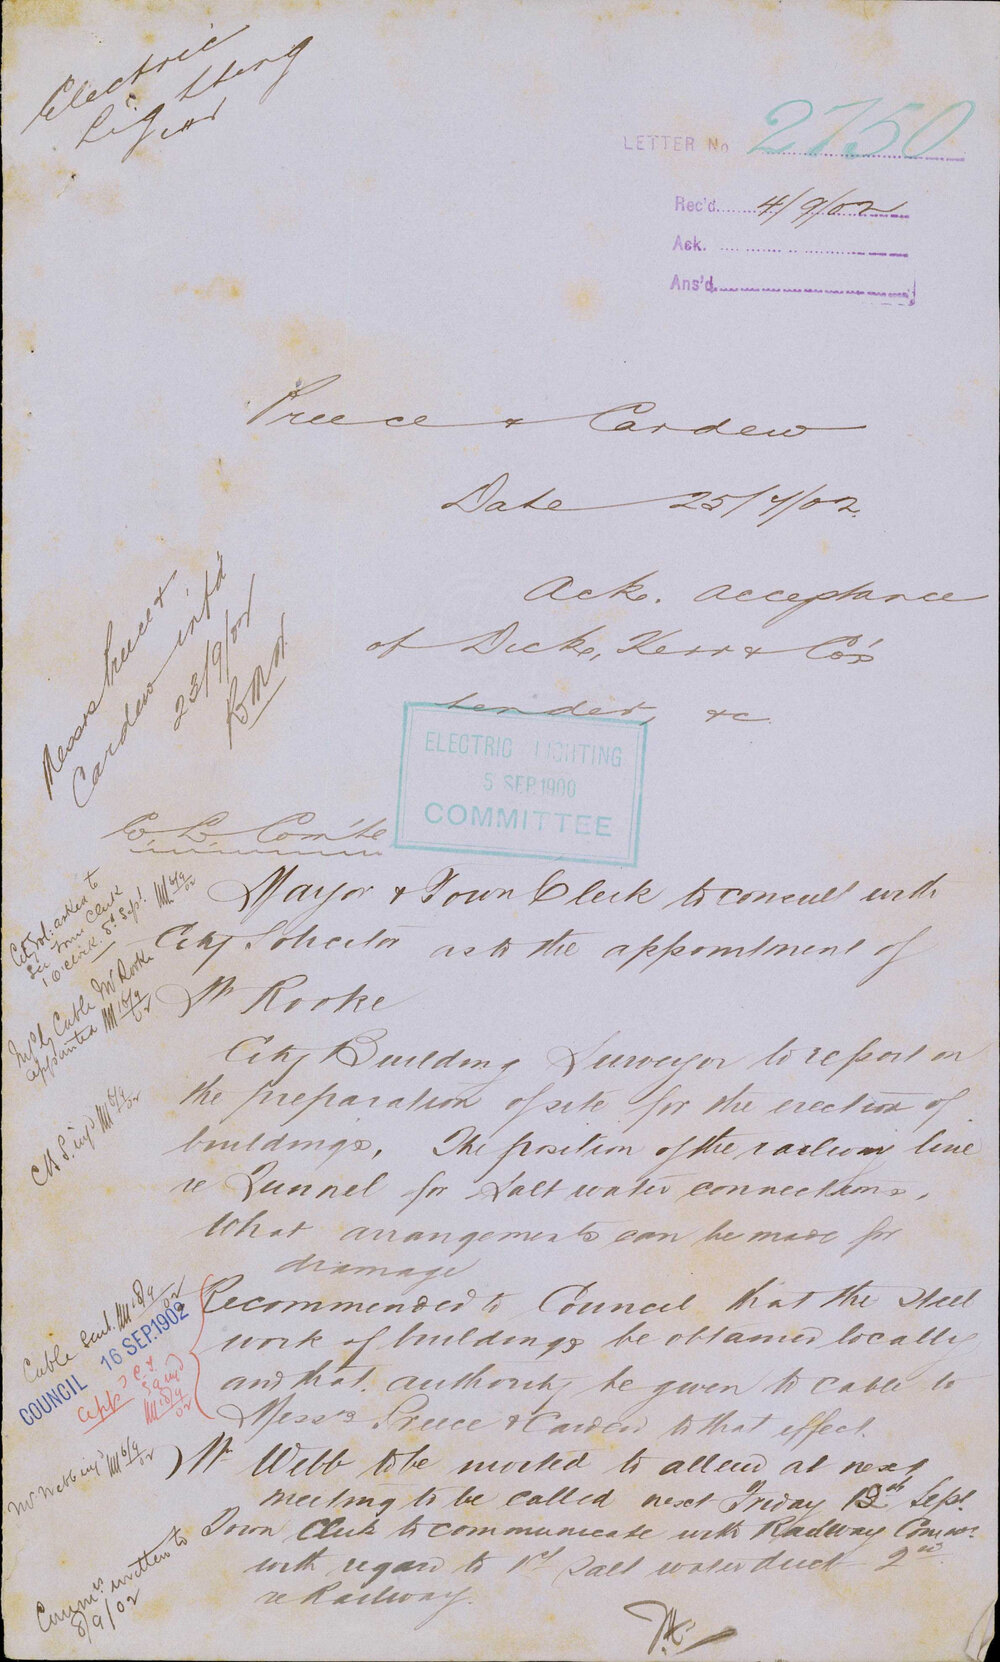 Electric
Lighting
LETTER No 2750
Rec'd. 4/9/02
Ack.
Ans'd
Preece & Cardew
Date 25/7/02.
Ack. acceptance
of Dick, Kerr & Co's
tender, &c
Messrs Preece &
Cardew inf'd
23/9/02
ELECTRIC LIGHTING
5 SEP. 1900
COMMITTEE
E L Com'te
Mayor & Town Clerk to consult with
City Solicitor as to the appointment of
Mr Rooke
City Sol: asked to
see Town Clerk
8th Sept. 6/9/02
Cable Mr Rooke
appointed 10/9/02
City Building Surveyor to report on
the preparation of site for the erection of
buildings, The position of the railway line
re Tunnel for Salt water connections.
What arrangements can be made for
drainage
6/9/02
Recommended to Council that the steel
work of buildings be obtained locally
and that authority be given to cable to
Messrs Preece & Cardew to that effect.
Cable Sent. 18/9/02
COUNCIL 16 SEP. 1902
App'd
Mr Webb to be invited to attend at next
meeting to be called next Friday 12th Sept.
Mr Webb inf'd 6/9/02
Town Clerk to communicate with Railway Commrs.
with regard to 1st Salt water duct 2nd
re Railway.
Commrs written to
8/9/02